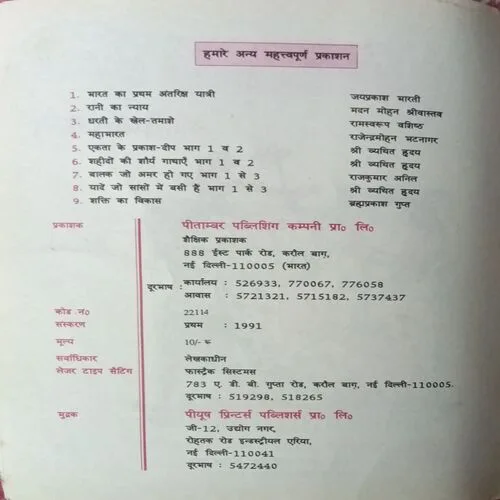 हमारे अन्य महत्त्वपूर्ण प्रकाशन
1. भारत का प्रथम अंतरिक्ष यात्री जयप्रकाश भारती
2. रानी का न्याय मदन मोहन श्रीवास्तव
3. धरती के खेल-तमाशे रामस्वरूप वशिष्ठ
4. महाभारत राजेन्द्रमोहन भटनागर
5. एकता के प्रकाश-दीप भाग 1 व 2 श्री व्यथित हृदय
6. शहीदों की शौर्य गाथाएँ भाग 1 व 2 श्री व्यथित हृदय
7. बालक जो अमर हो गए भाग 1 से 3 राजकुमार अनिल
8. यादें जो सांसों में बसी हैं भाग 1 से 3 श्री व्यथित हृदय
9. शक्ति का विकास ब्रह्मप्रकाश गुप्त
प्रकाशक पीताम्बर पब्लिशिंग कम्पनी प्रा० लि०
शैक्षिक प्रकाशक
888 ईस्ट पार्क रोड, करौल बाग़,
नई दिल्ली-110005 (भारत)
दूरभाष : कार्यालय : 526933, 770067, 776058
आवास : 5721321, 5715182, 5737437
कोड नं० 22114
संस्करण प्रथम : 1991
मूल्य 10/-
सर्वाधिकार लेखकाधीन
लेजर टाइप सैटिंग फास्ट्रैक सिस्टमस
783 ए. डी. बी. गुप्ता रोड, करौल बाग़, नई दिल्ली-110005.
दूरभाष : 519298, 518265
मुद्रक पीयूष प्रिन्टर्स पब्लिशर्स प्रा० लि०
जी-12, उद्योग नगर,
रोहतक रोड इन्डस्ट्रीयल एरिया,
नई दिल्ली-110041
दूरभाष : 5472440